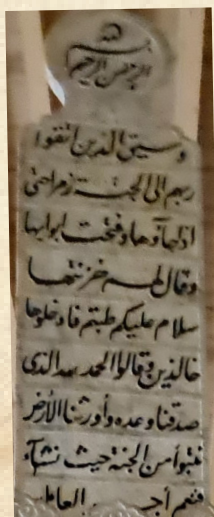 بسم الله
الرحمن الرحيم
وسيق الذين اتقوا
ربهم الى الجنة زمرا حتى
اذا جاؤها وفتحت ابوابها
وقال لهم خزنتها
سلام عليكم طبتم فادخلوها
خالدين وقالوا الحمد لله الذى
صدقنا وعده وأورثنا الأرض
نتبوأ من الجنة حيث نشآء
فنعم أجر العاملين